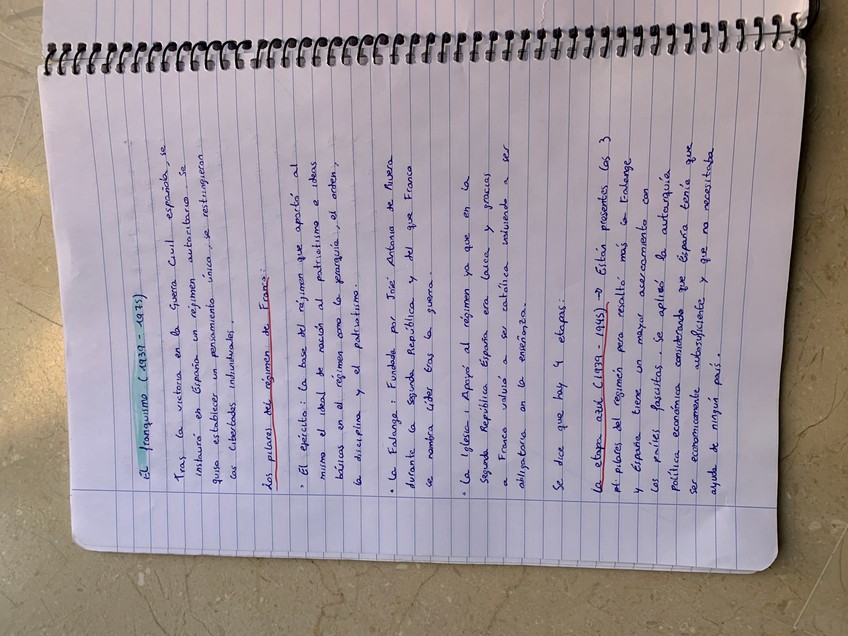 El franquismo (1939 - 1975)
Tras la victoria en la Guerra Civil española, se
instauró en España un régimen autoritario. Se
quiso establecer un pensamiento único, se restringieron
las libertades individuales.
Los pilares del régimen de Franco:
· El ejército: la base del régimen que aportó al
mismo el ideal de nación al patriotismo e ideas
básicas en el régimen como la jerarquía, el orden,
la disciplina y el patriotismo.
· La Falange: Fundada por José Antonio de Rivera
durante la Segunda República y del que Franco
se nombra líder tras la guerra.
· La Iglesia: Apoyó al régimen ya que en la
Segunda República España era laica y gracias
a Franco volvió a ser católica volviendo a ser
obligatoria en la enseñanza.
Se dice que hay 4 etapas:
La etapa azul (1939 - 1945) → Están presentes los 3
pilares del régimen pero resaltó más la Falange
y España tiene un mayor acercamiento con
los países fascistas. Se aplicó la autarquía
política económica considerando que España tenía que
ser económicamente autosuficiente y que no necesitaba
ayuda de ningún país.